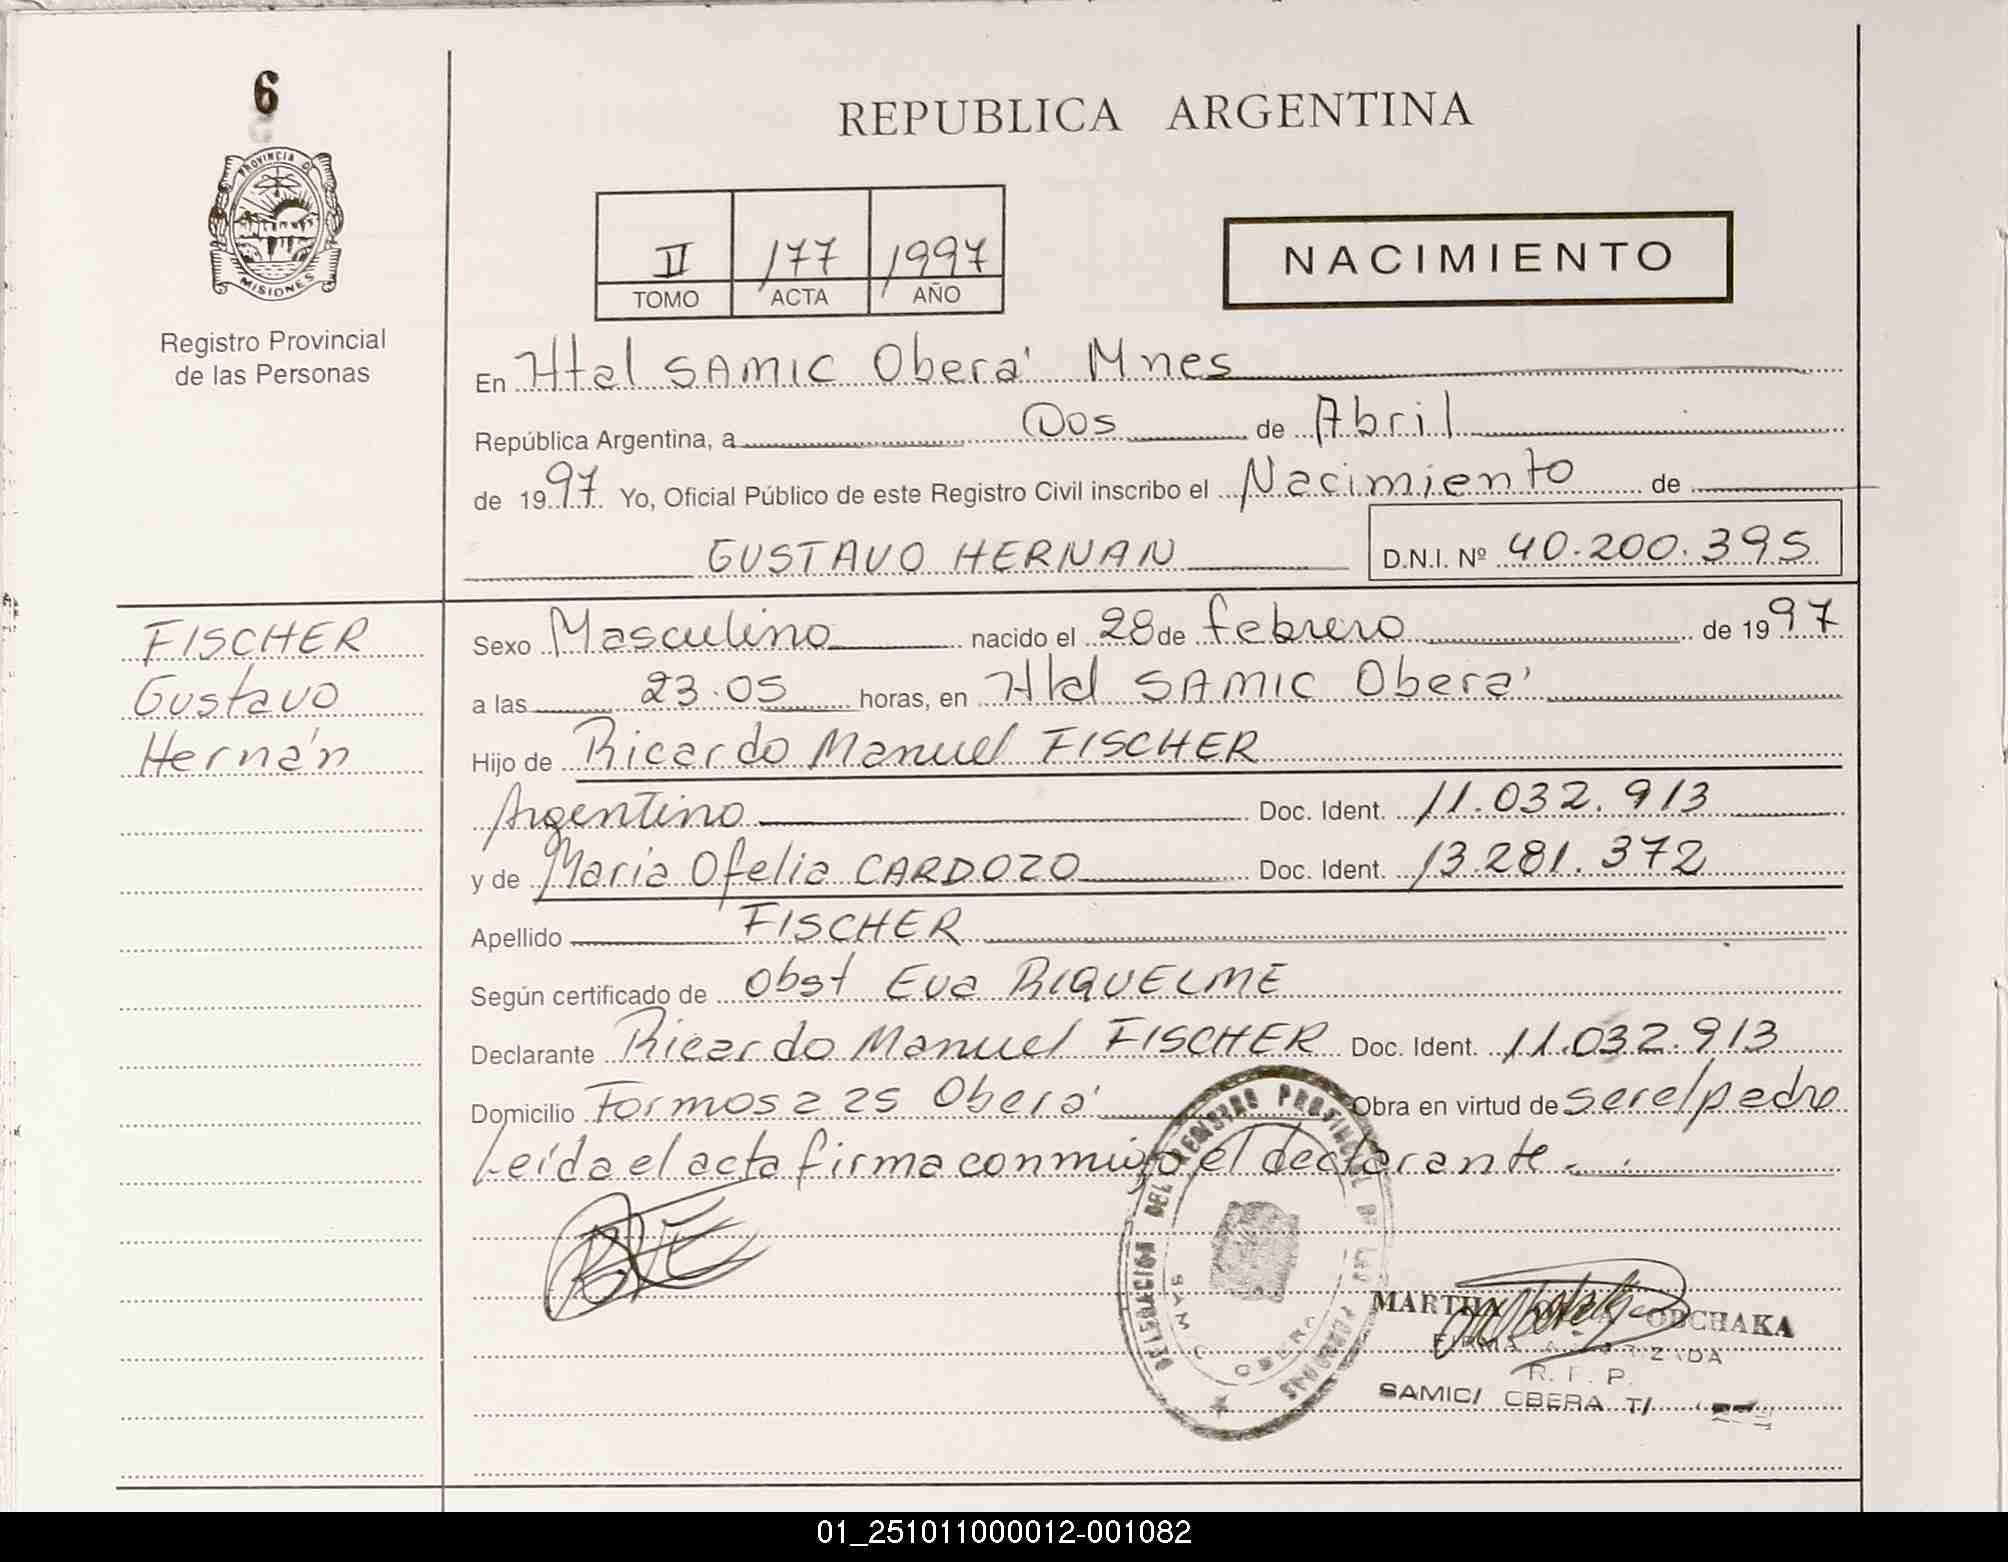 6
REPUBLICA ARGENTINA
PROVINCIA DE
MISIONES
Registro Provincial
de las Personas
II 177 1997
TOMO ACTA AÑO
NACIMIENTO
En Htal SAMIC Oberá Mnes
República Argentina, a Dos de Abril
de 1997 Yo, Oficial Público de este Registro Civil inscribo el Nacimiento de
GUSTAVO HERNAN D.N.I. Nº 40.200.395
FISCHER
Gustavo
Hernán
Sexo Masculino nacido el 28 de febrero de 1997
a las 23.05 horas, en Htal SAMIC Oberá
Hijo de Ricardo Manuel FISCHER
Argentino Doc. Ident. 11.032.913
y de Maria Ofelia CARDOZO Doc. Ident. 13.281.372
Apellido FISCHER
Según certificado de Obst Eva RIQUELME
Declarante Ricardo Manuel FISCHER Doc. Ident. 11.032.913
Domicilio Formosa 25 Oberá Obra en virtud de ser el padre
Leída el acta firma conmigo el declarante.
DELEGACION DEL REGISTRO PROVINCIAL DE LAS PERSONAS
OBERA
MARTHA OBCHAKA
FIRMA AUTORIZADA
R. P. P.
SAMIC/ OBERA T/
01_251011000012-001082